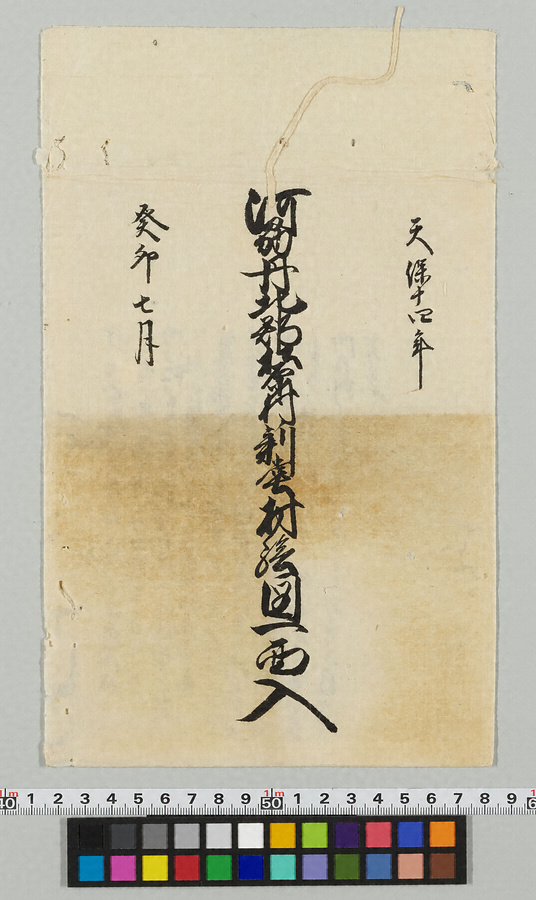 天保十四年
河州丹北郡松原村新堂村絵図一面入
癸卯七月
1m 1m 1
40 1 2 3 4 5 6 7 8 9 50 1 2 3 4 5 6 7 8 9 6